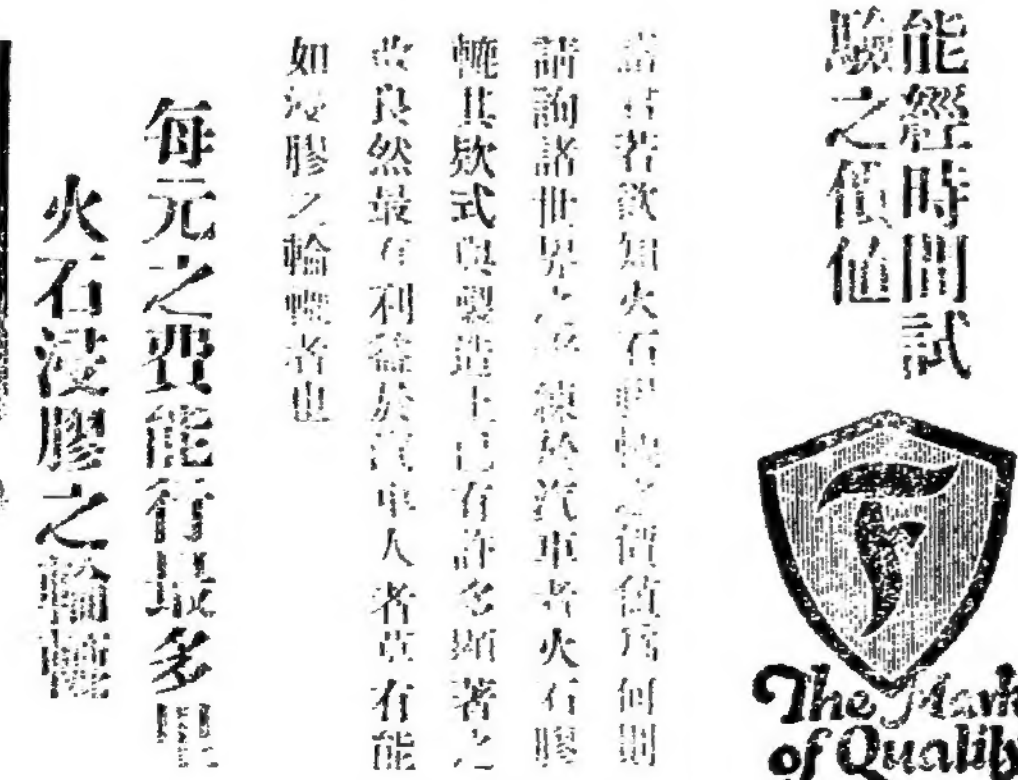 能經時間試
驗之價值
The Mark
of Quality
諸君若欲知火石膠之價值乃何則
請詢諸世界之練於汽車者火石膠
其款式與製造上已有許多顯著之
改良然最有利益於汽車人者莫有能
如浸膠之輪者也
每元之費能行最多
火石浸膠之輪